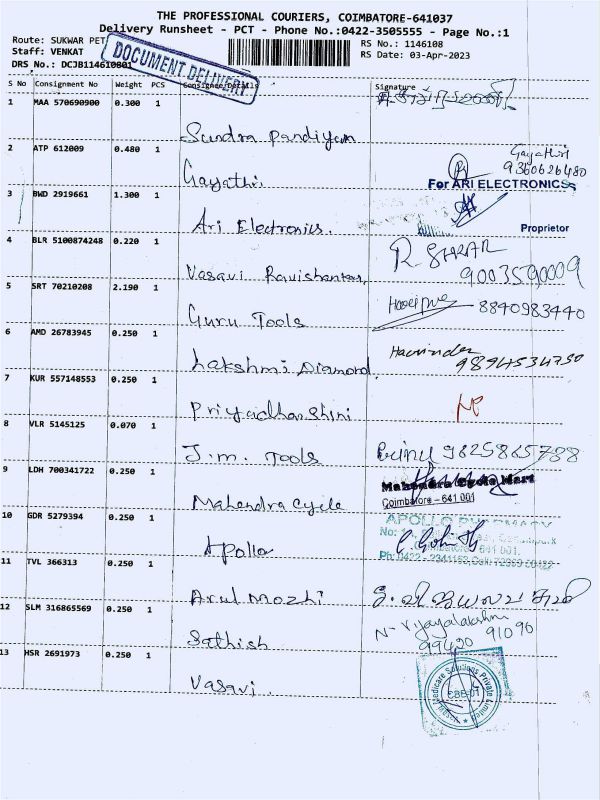 THE PROFESSIONAL COURIERS, COIMBATORE-641037
Delivery Runsheet - PCT - Phone No.:0422-3505555 - Page No.:1
Route: SUKWAR PET
RS No.: 1146108
Staff: VENKAT
RS Date: 03-Apr-2023
DRS No.: DCJB114610801
DOCUMENT DELIVERY
S No Consignment No Weight PCS Consignee/Details Signature
1 MAA 570690900 0.300 1
Sundra Pandiyan
2 ATP 612009 0.480 1
Gayathri
9360626480
Gayathi.
For ARI ELECTRONICS
3 BWD 2919661 1.300 1
Ari Electronics.
Proprietor
4 BLR 5100874248 0.220 1
Vasavi Ravishankar,
9003590009
5 SRT 70210208 2.190 1
8840983440
Guru Tools
6 AMD 26783945 0.250 1
Harvinder
9894534730
Lakshmi Diamond.
7 KUR 557148553 0.250 1
Priyadharshini
8 VLR 5145125 0.070 1
J.m. Tools
9825865788
9 LDH 700341722 0.250 1
Mahendra Cycle Mart
Coimbatore - 641 001
Mahendra Cycle
10 GDR 5279394 0.250 1
APOLLO PHARMACY
Coimbatore - 641 001.
Apollo
11 TVL 366313 0.250 1
Arul Mozhi
12 SLM 316865569 0.250 1
N. Vijayalakshmi
99420 91090
Sathish
13 HSR 2691973 0.250 1
Vasavi.